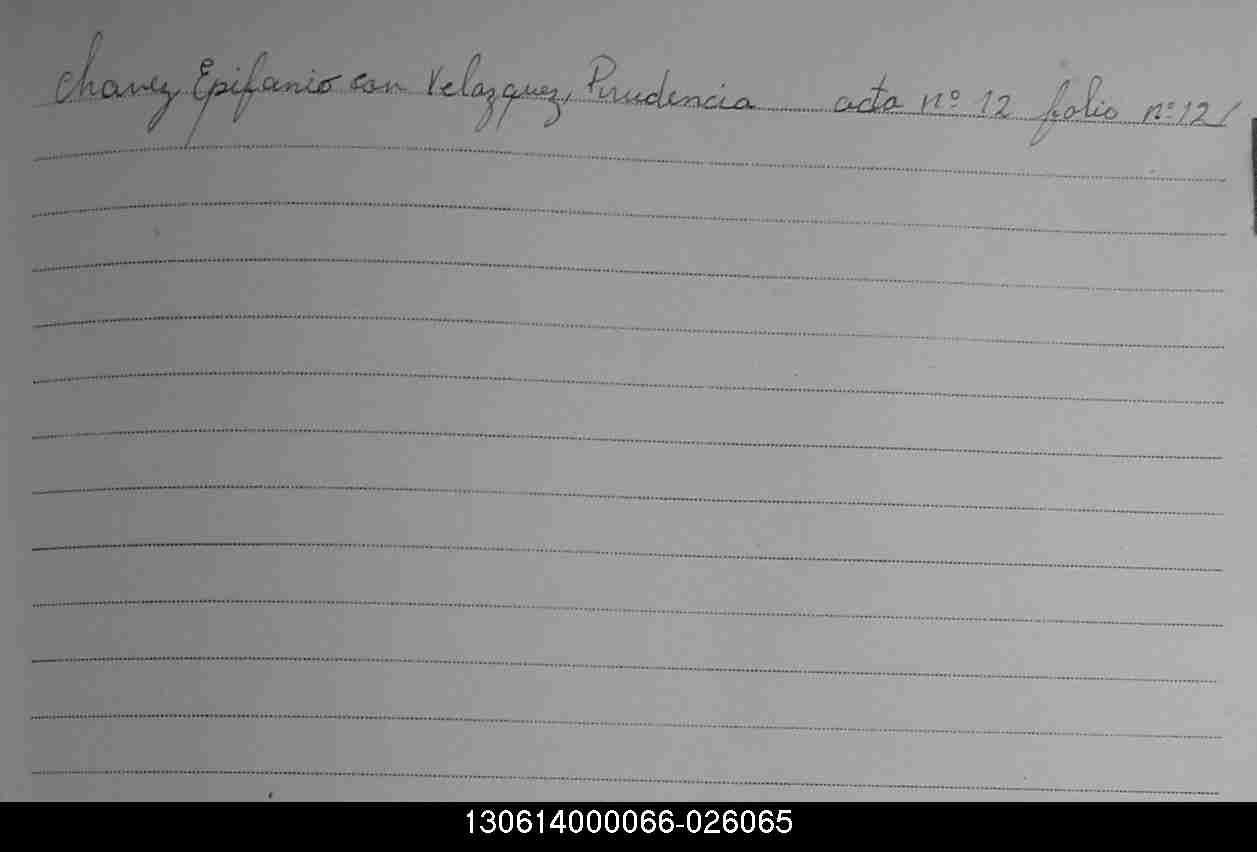 Chavez Epifanio con Velazquez, Prudencia acta nº 12 folio nº 12/
130614000066-026065